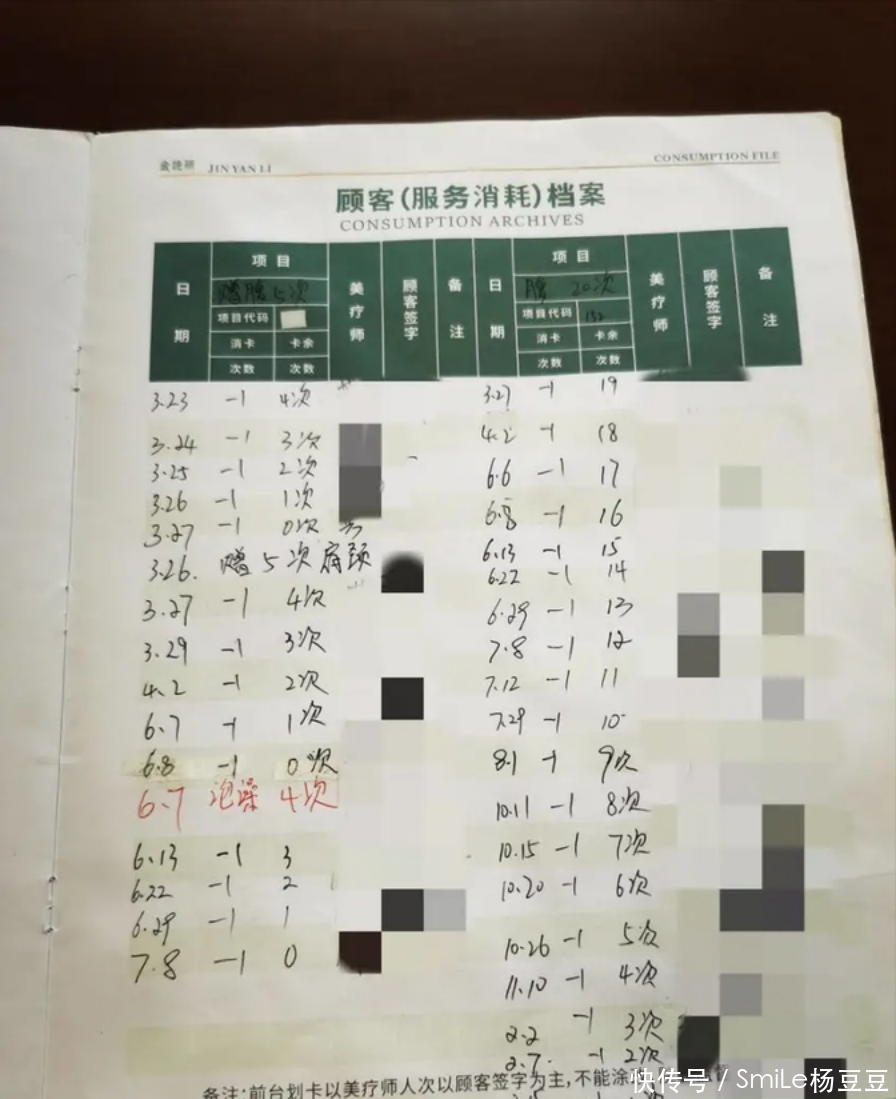 金妍丽 JIN YAN LI
CONSUMPTION FILE
顾客(服务消耗)档案
CONSUMPTION ARCHIVES
日期 项目 美疗师 顾客签字 备注
赠腰5次
项目代码
消卡次数 卡余次数
3.23 -1 4次
3.24 -1 3次
3.25 -1 2次
3.26 -1 1次
3.27 -1 0次
3.26. 赠5次肩颈
3.27 -1 4次
3.29 -1 3次
4.2 -1 2次
6.7 -1 1次
6.8 -1 0次
6.7 泡澡 4次
6.13 -1 3
6.22 -1 2
6.29 -1 1
7.8 -1 0
日期 项目 美疗师 顾客签字 备注
腰 20次
项目代码 152
消卡次数 卡余次数
3.27 -1 19
4.2 -1 18
6.6 -1 17
6.8 -1 16
6.13 -1 15
6.22 -1 14
6.29 -1 13
7.8 -1 12
7.12 -1 11
7.29 -1 10
8.1 -1 9次
10.11 -1 8次
10.15 -1 7次
10.20 -1 6次
10.26 -1 5次
11.10 -1 4次
2.2 -1 3次
2.7 -1 2次
备注:前台划卡以美疗师人次以顾客签字为主,不能涂
快传号 / SmiLe杨豆豆